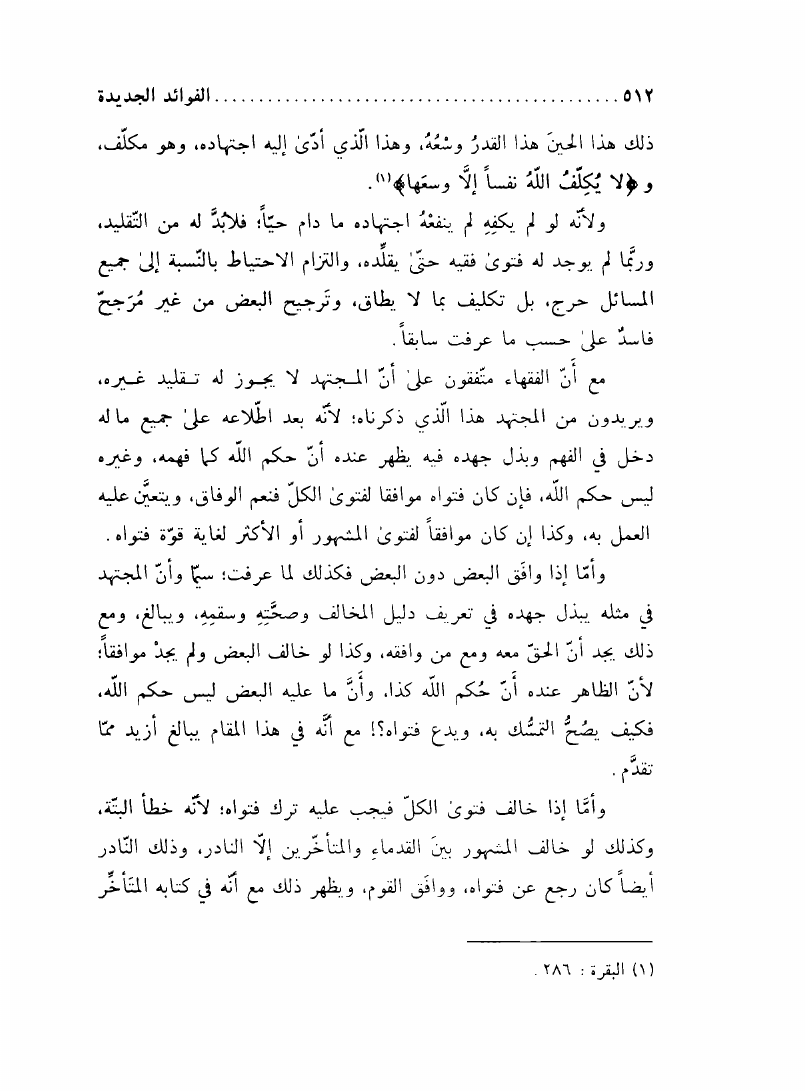 ٥١٢ .............................................. الفوائد الجديدة
ذلك هذا الحينَ هذا القدرُ وسْعُهُ، وهذا الّذي أدّىٰ إليه اجتهاده، وهو مكلّف،
و ﴿لا يُكلِّفُ اللّهُ نفساً إلَّا وسعَها﴾(١).
ولأنّه لو لم يكفِهِ لم ينفعْهُ اجتهاده ما دام حيّاً؛ فلابُدَّ له من التّقليد،
وربَّما لم يوجد له فتوىٰ فقيه حتّىٰ يقلِّده، والتزام الاحتياط بالنّسبة إلىٰ جميع
المسائل حرج، بل تكليف بما لا يطاق، وتَرجيح البعض من غير مُرَجحّ
فاسدٌ علىٰ حسب ما عرفت سابقاً.
مع أَنّ الفقهاء متّفقون علىٰ أنّ المجتهد لا يجوز له تقليد غيره،
ويريدون من المجتهد هذا الّذي ذكرناه؛ لأنّه بعد اطّلاعه علىٰ جميع ما له
دخل في الفهم وبذل جهده فيه يظهر عنده أنّ حكم اللّه كما فهمه، وغيره
ليس حكم اللّه، فإن كان فتواه موافقا لفتوىٰ الكلّ فنعم الوفاق، ويتعيَّن عليه
العمل به، وكذا إن كان موافقاً لفتوىٰ المشهور أو الأكثر لغاية قوّة فتواه.
وأمّا إذا وافَق البعض دون البعض فكذلك لما عرفت؛ سيّما وأنّ المجتهد
في مثله يبذل جهده في تعريف دليل المخالف وصحَّتِهِ وسقمِهِ، ويبالغ، ومع
ذلك يجد أنّ الحقّ معه ومع من وافقه، وكذا لو خالف البعض ولم يجدْ موافقاً؛
لأنّ الظاهر عنده أَنّ حُكم اللّه كذا، وأَنَّ ما عليه البعض ليس حكم اللّه،
فكيف يصُحُّ التمسُّك به، ويدع فتواه؟! مع أنَّه في هذا المقام يبالغ أزيد ممّا
تقدَّم.
وأمَّا إذا خالف فتوىٰ الكلّ فيجب عليه ترك فتواه؛ لأنّه خطأ البتّة،
وكذلك لو خالف المشهور بينَ القدماءِ والمتأخّرين إلّا النادر، وذلك النّادر
أيضاً كان رجع عن فتواه، ووافَق القوم، ويظهر ذلك مع أنّه في كتابه المتَأخِّر
(١) البقرة : ٢٨٦ .